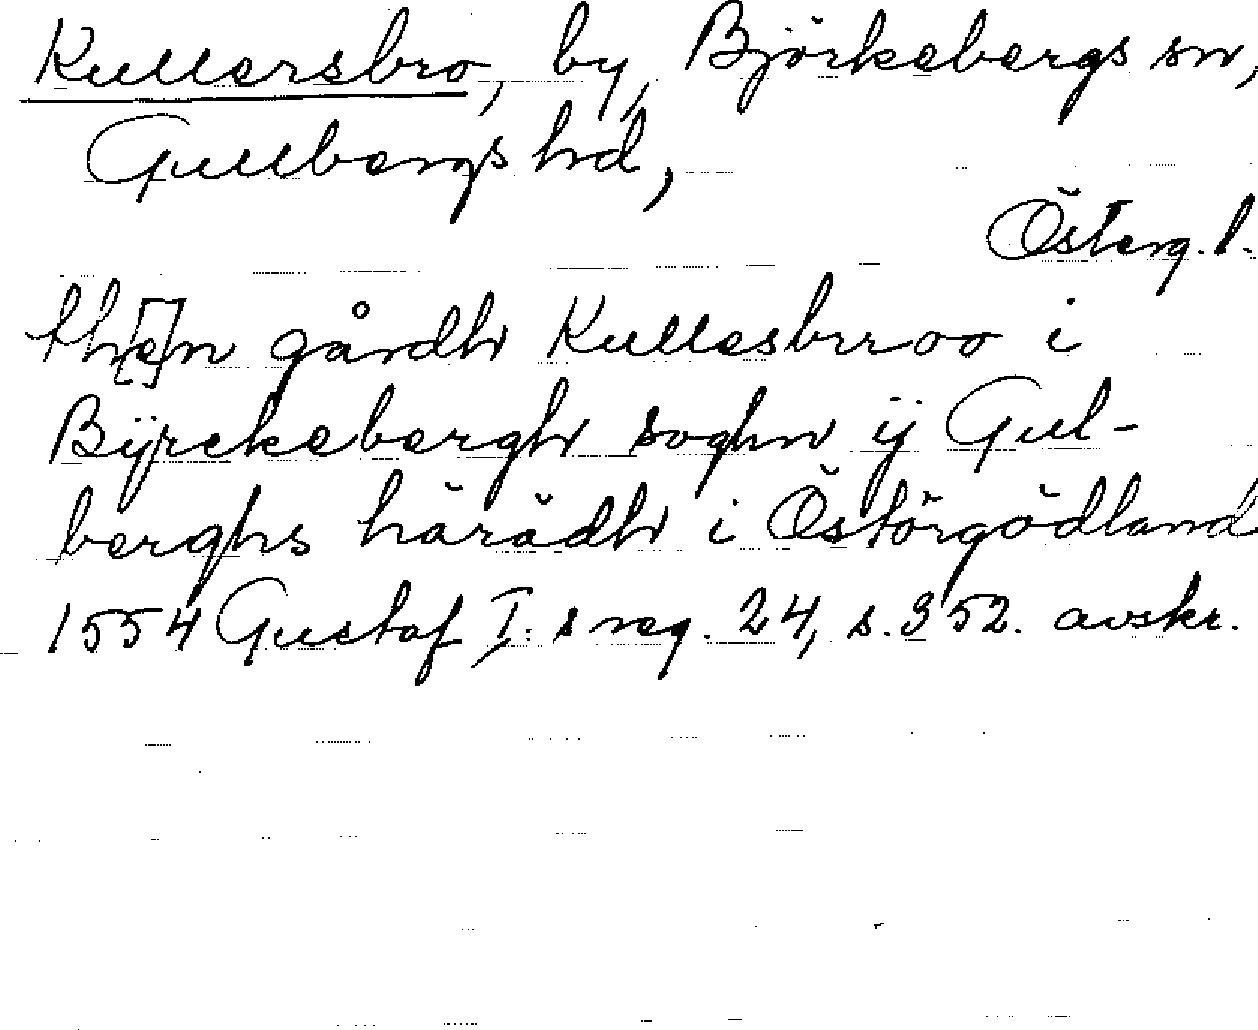 Kullersbro, by, Björkebergs sn,
Gullbergs hd,
Österg. l.
th[e]n gårdh Kullesbroo i
Bÿrckebergh soghn ÿ Gul-
berghs härädh i Östörgödland
1554 Gustaf I:s reg. 24, s. 352. avskr.